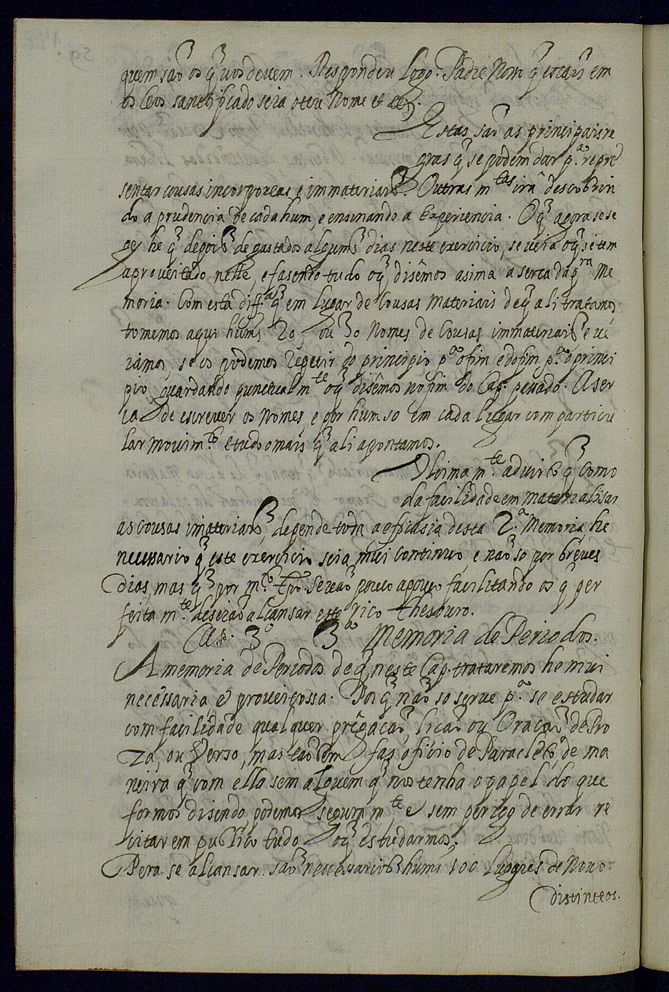 quem saõ os q̃ vos devem. Respondeu logo. Padre Noso q̃ estais em
os Ceos santificado seia o teu Nome et cet.
Estas saõ as principais re
gras q̃ se podem dar p.ª repre
sentar cousas incorporeas e immateriais. Outras m.tas irá descobrin
do a prudencia de cada hum, e ensinando a Experiencia. O q̃ agora se se
ge he q̃ depois de gastados alguns dias neste exercicio, se veia o q̃ se tem
aproveitado nelle, e fasendo tudo o q̃ disemos asima a serca da pr.ª Me
moria. Com esta diff.ª q̃ em lugar de Cousas materiais de q̃ ali tratamos
tomemos aqui huns 20 ou 30 Nomes de Cousas immateriais e ve
iamos se os podemos repetir do principio p.ª o fim e do fim p.ª o princi
pio, guardando punctualm.te o q̃ disemos no fim do Cap. pasado. A ser
ca de escrever os Nomes, e por hum so em cada lugar com particu
lar movim.to e tudo o mais q̃ ali apontamos.
Ultimam.te advirto q̃ como
da facilidade em materialisar
as cousas imateriais, depende toda a efficasia desta 2.ª Memoria he
necessario q̃ este exercicio seia mui continuo e naõ so por breves
Dias, mas q̃ por m.to tpõ se vaõ pouco a pouco facilitando os q̃ per
feitam.te deseiaõ alcansar este rico thesouro.
Cap. 3º 3ª Memoria de Periodos.
A memoria de Periodos de q̃ neste Cap. trataremos he mui
necessaria e proveitossa. Porq̃ naõ so serve p.ª se estudar
com facilidade qualquer pregaçaõ, licaõ ou Oraçaõ de Pro
za, ou Verso, mas taõbem fas officio de Paracleto de ma
neira q̃ com ella sem alguem q̃ nos tenha o papel do que
formos disendo podemos seguram.te e sem perigo de errar re
citar em publico tudo o q̃ estudarmos.
Pera se alcansar saõ necessarios huns 100 Lugares de Novo
distinctos.